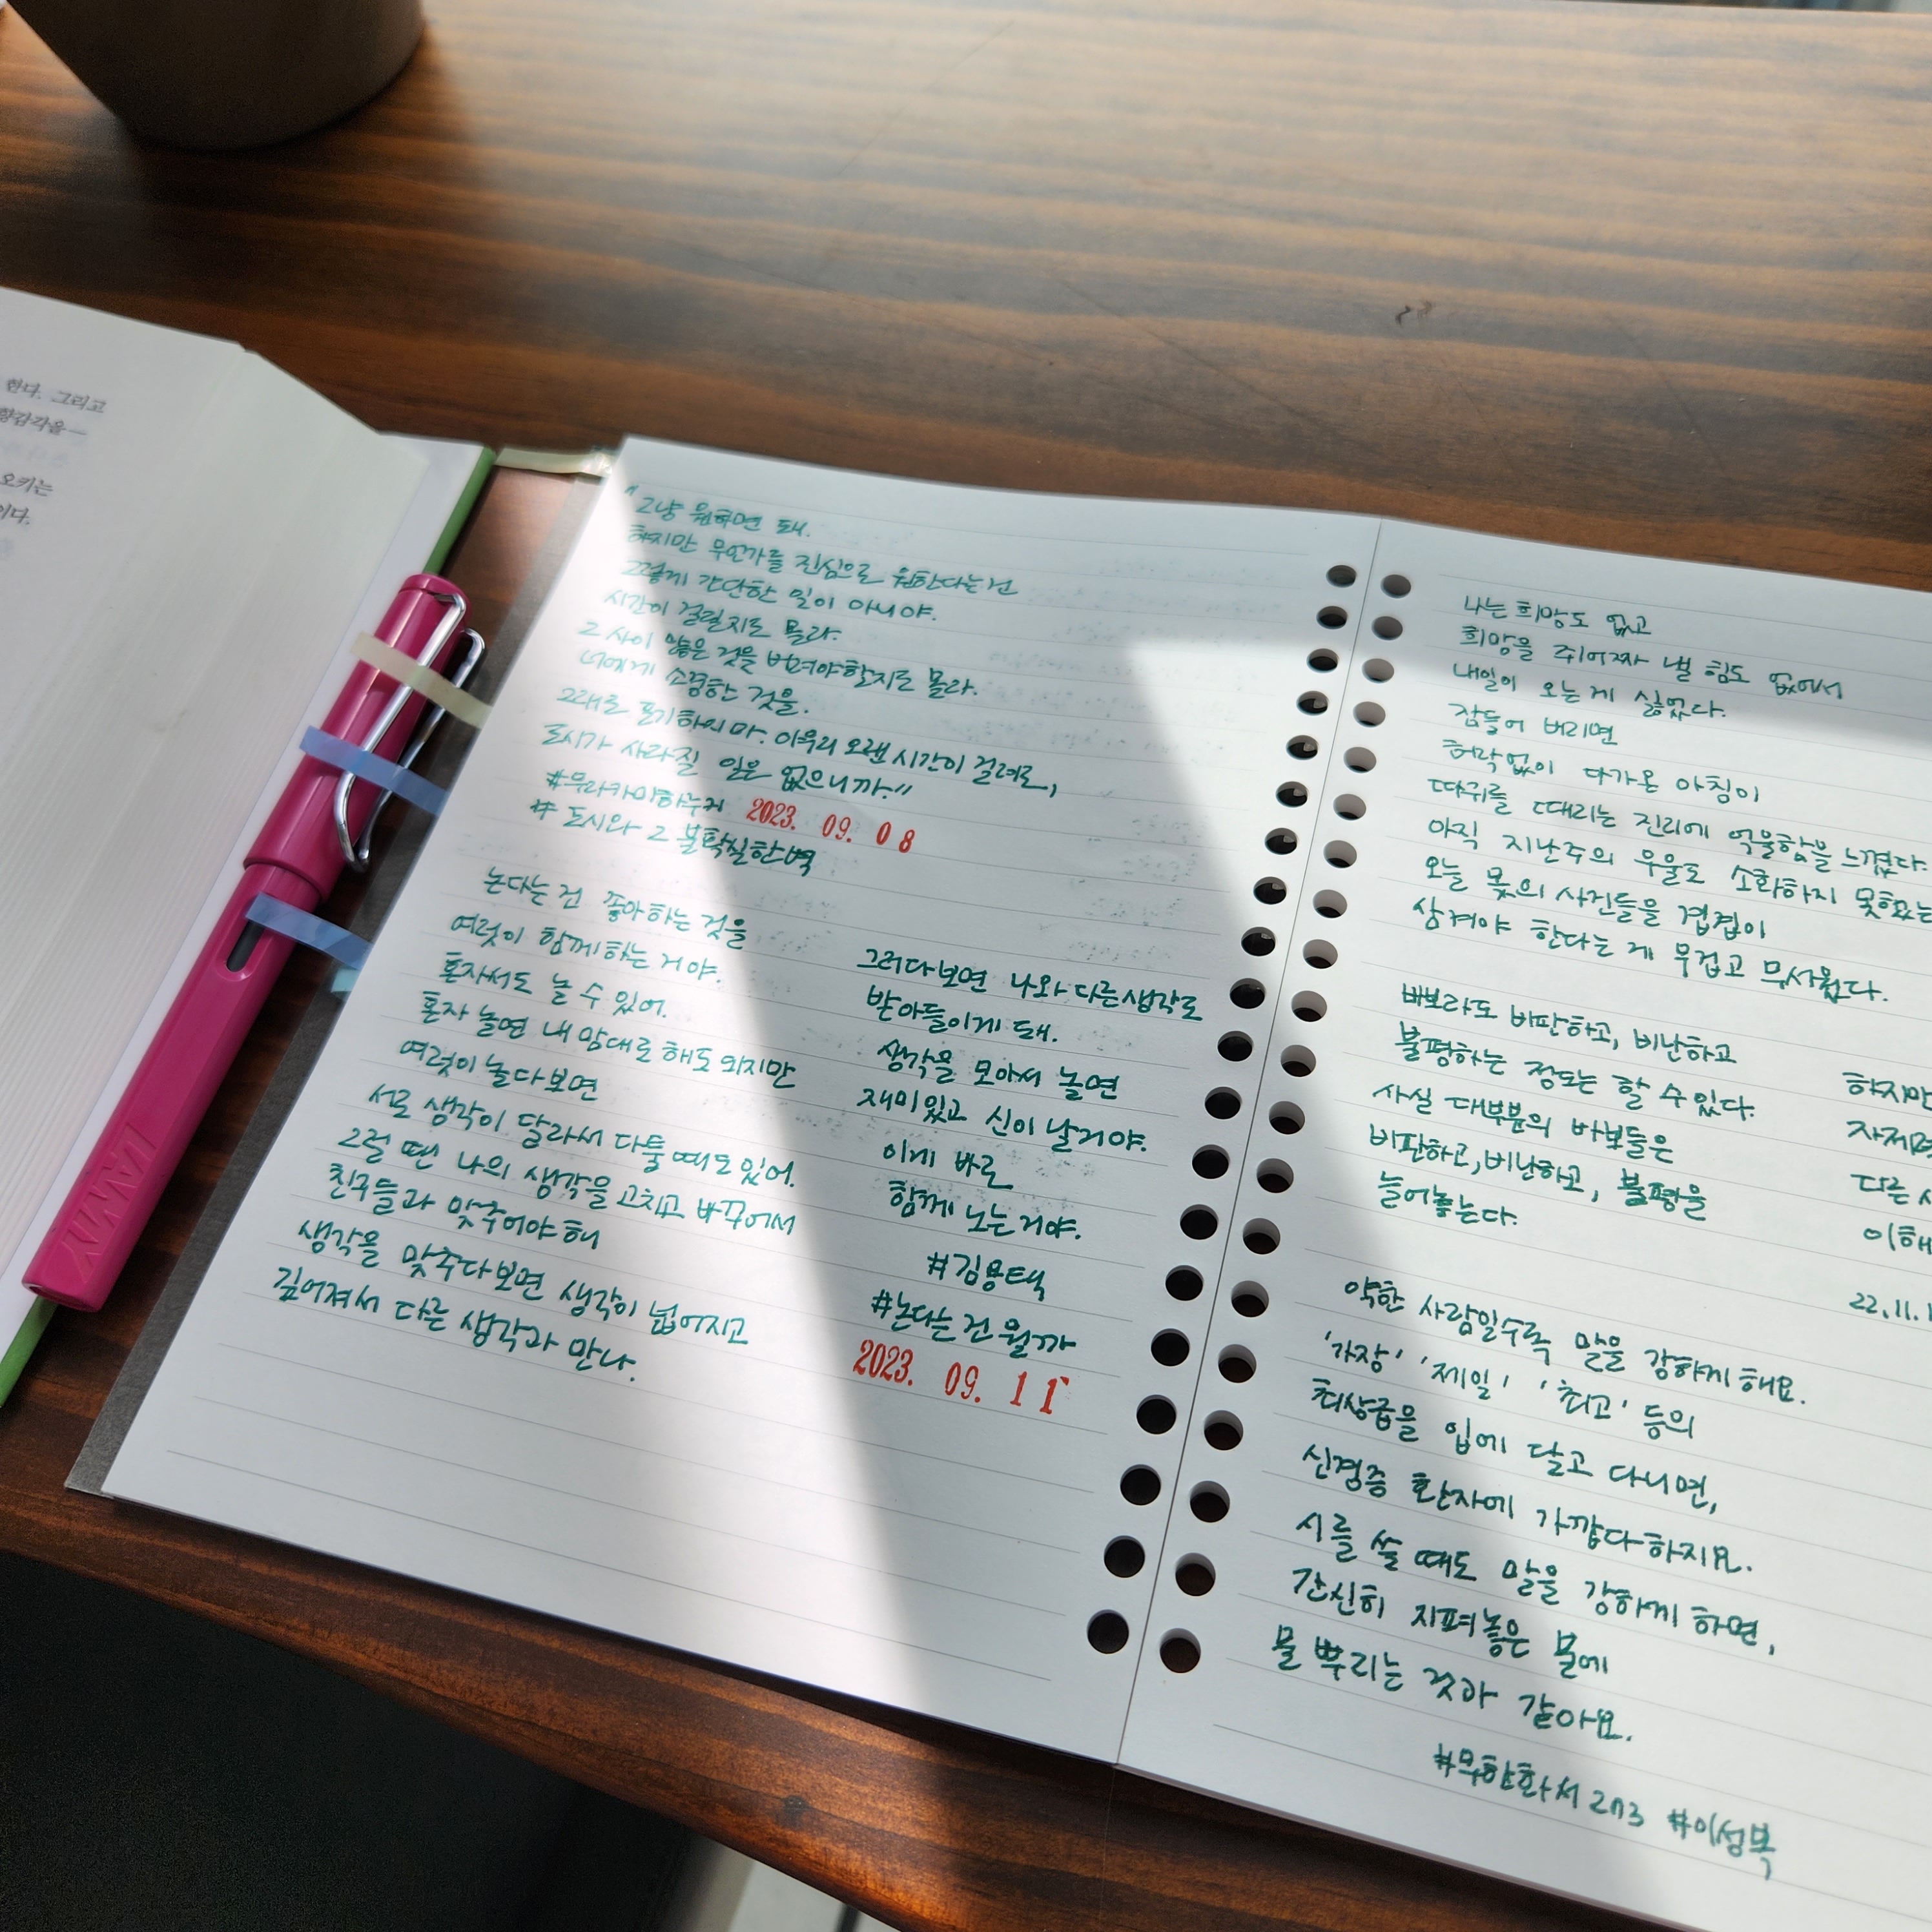 한다. 그리고
향감각을—
오키는
이다.
LAMY
"그냥 원하면 돼.
하지만 무언가를 진심으로 원한다는 건
그렇게 간단한 일이 아니야.
시간이 걸릴지도 몰라.
그 사이 많은 것을 버려야 할지도 몰라.
너에게 소중한 것을.
그래도 포기하지 마. 아무리 오랜 시간이 걸려도,
도시가 사라질 일은 없으니까."
#무라카미하루키 2023. 09. 08
# 도시와 그 불확실한 벽
논다는 건 좋아하는 것을
여럿이 함께 하는 거야.
혼자서도 놀 수 있어.
혼자 놀면 내 맘대로 해도 되지만
여럿이 놀다보면
서로 생각이 달라서 다툴 때도 있어.
그럴 땐 나의 생각을 고치고 바꾸어서
친구들과 맞추어야 해
생각을 맞추다보면 생각이 넓어지고
깊어져서 다른 생각과 만나.
그러다보면 나와 다른 생각도
받아들이게 돼.
생각을 모아서 놀면
재미있고 신이 날거야.
이게 바로
함께 노는거야.
#김용택
#논다는 건 뭘까
2023. 09. 11
나는 희망도 없고
희망을 쥐어짜 낼 힘도 없어서
내일이 오는게 싫었다.
잠들어 버리면
허락없이 다가온 아침이
따귀를 때리는 진리에 억울함을 느꼈다.
아직 지난주의 우울도 소화하지 못했는
오늘 몫의 사건들을 겹겹이
삼켜야 한다는 게 무겁고 무서웠다.
바보라도 비판하고, 비난하고
불평하는 정도는 할 수 있다.
사실 대부분의 바보들은
비판하고, 비난하고, 불평을
늘어놓는다.
하지만
다른 사
이해
22.11.1
약한 사람일수록 말을 강하게 해요.
'가장' '제일' '최고' 등의
최상급을 입에 달고 다니면,
신경증 환자에 가깝다 하지요.
시를 쓸 때도 말을 강하게 하면,
간신히 지펴놓은 불에
물 뿌리는 것과 같아요.
#무한화서 2173 #이성복